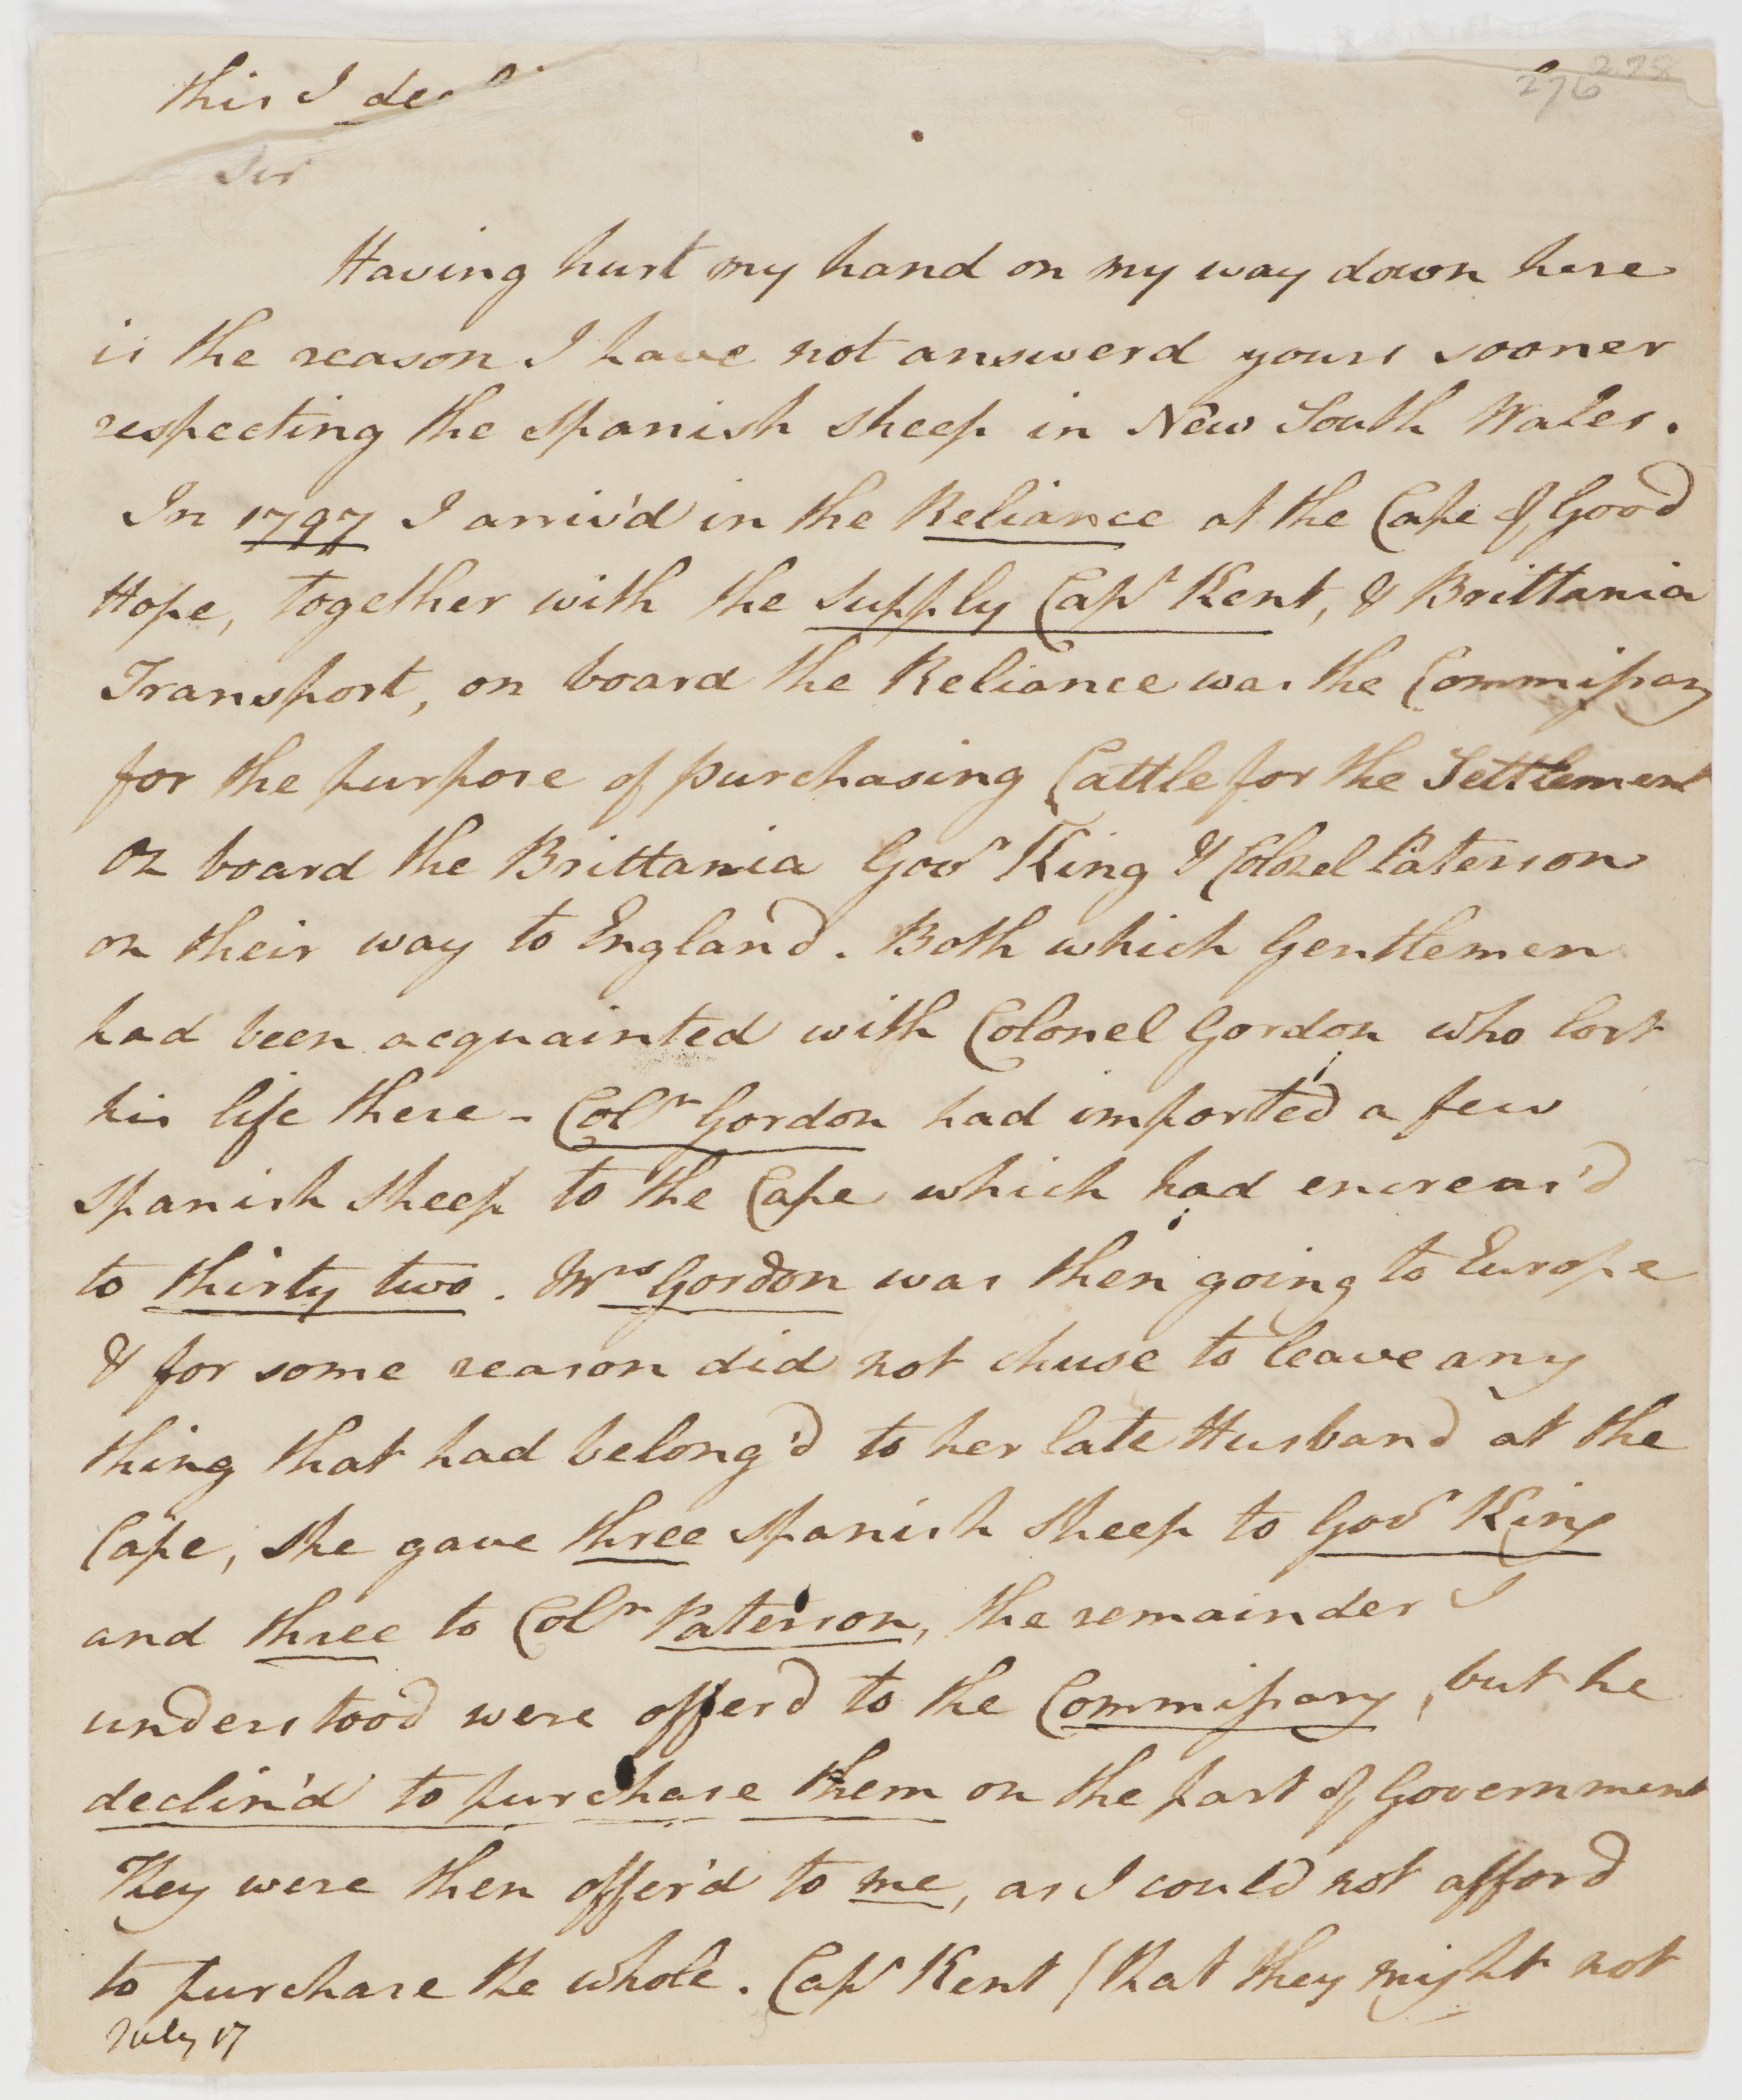 this I
278
276
Sir
Having hurt my hand on my way down here
is the reason I have not answerd yours sooner
respecting the Spanish sheep in New South Wales.
In 1797 I arriv'd in the Reliance at the Cape of Good
Hope, together with the Supply Capt Kent, & Brittania
Transport, on board the Reliance was the Commissary
for the purpose of purchasing Cattle for the Settlement
On board the Brittania Govr King & Colonel Paterson
on their way to England. Both which Gentlemen
had been acquainted with Colonel Gordon who lost
his life there - Coll Gordon had imported a few
Spanish Sheep to the Cape which had encreas'd
to thirty two. Mrs Gordon was then going to Europe
& for some reason did not chuse to leave any
thing that had belong'd to her late Husband at the
Cape, she gave three Spanish Sheep to Govr King
and three to Coll Paterson, the remainder I
understood were offerd to the Commissary, but he
declin'd to purchase them on the part of Government
They were then offer'd to me, as I could not afford
to purchase the whole. Capt Kent (that they might not
July 17